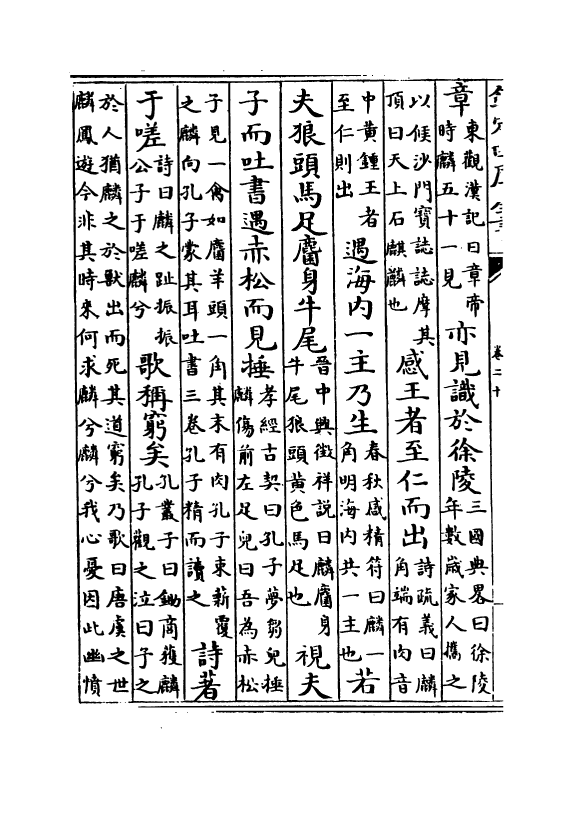 欽定四庫全書 卷二十
章東觀漢記曰章帝時麟五十一見亦見識於徐陵三國典畧曰徐陵年數嵗家人攜之
以候沙門寶誌誌摩其頂曰天上石麒麟也感王者至仁而出詩疏義曰麟角端有肉音
中黄鍾王者至仁則出遇海内一主乃生春秋感精符曰麟一角明海内共一主也若
夫狼頭馬足麕身牛尾晉中興徵祥説曰麟麕身牛尾狼頭黄色馬足也視夫
子而吐書遇赤松而見捶孝經古契曰孔子夢芻兒捶麟傷前左足兒曰吾為赤松
子見一禽如麕羊頭一角其末有肉孔子束薪覆之麟向孔子蒙其耳吐書三卷孔子精而讀之詩著
于嗟詩曰麟之趾振振公子于嗟麟兮歌稱窮矣孔叢子曰鋤商獲麟孔子觀之泣曰子之
於人猶麟之於獸出而死其道窮矣乃歌曰唐虞之世麟鳳遊今非其時來何求麟兮麟兮我心憂因此幽憤